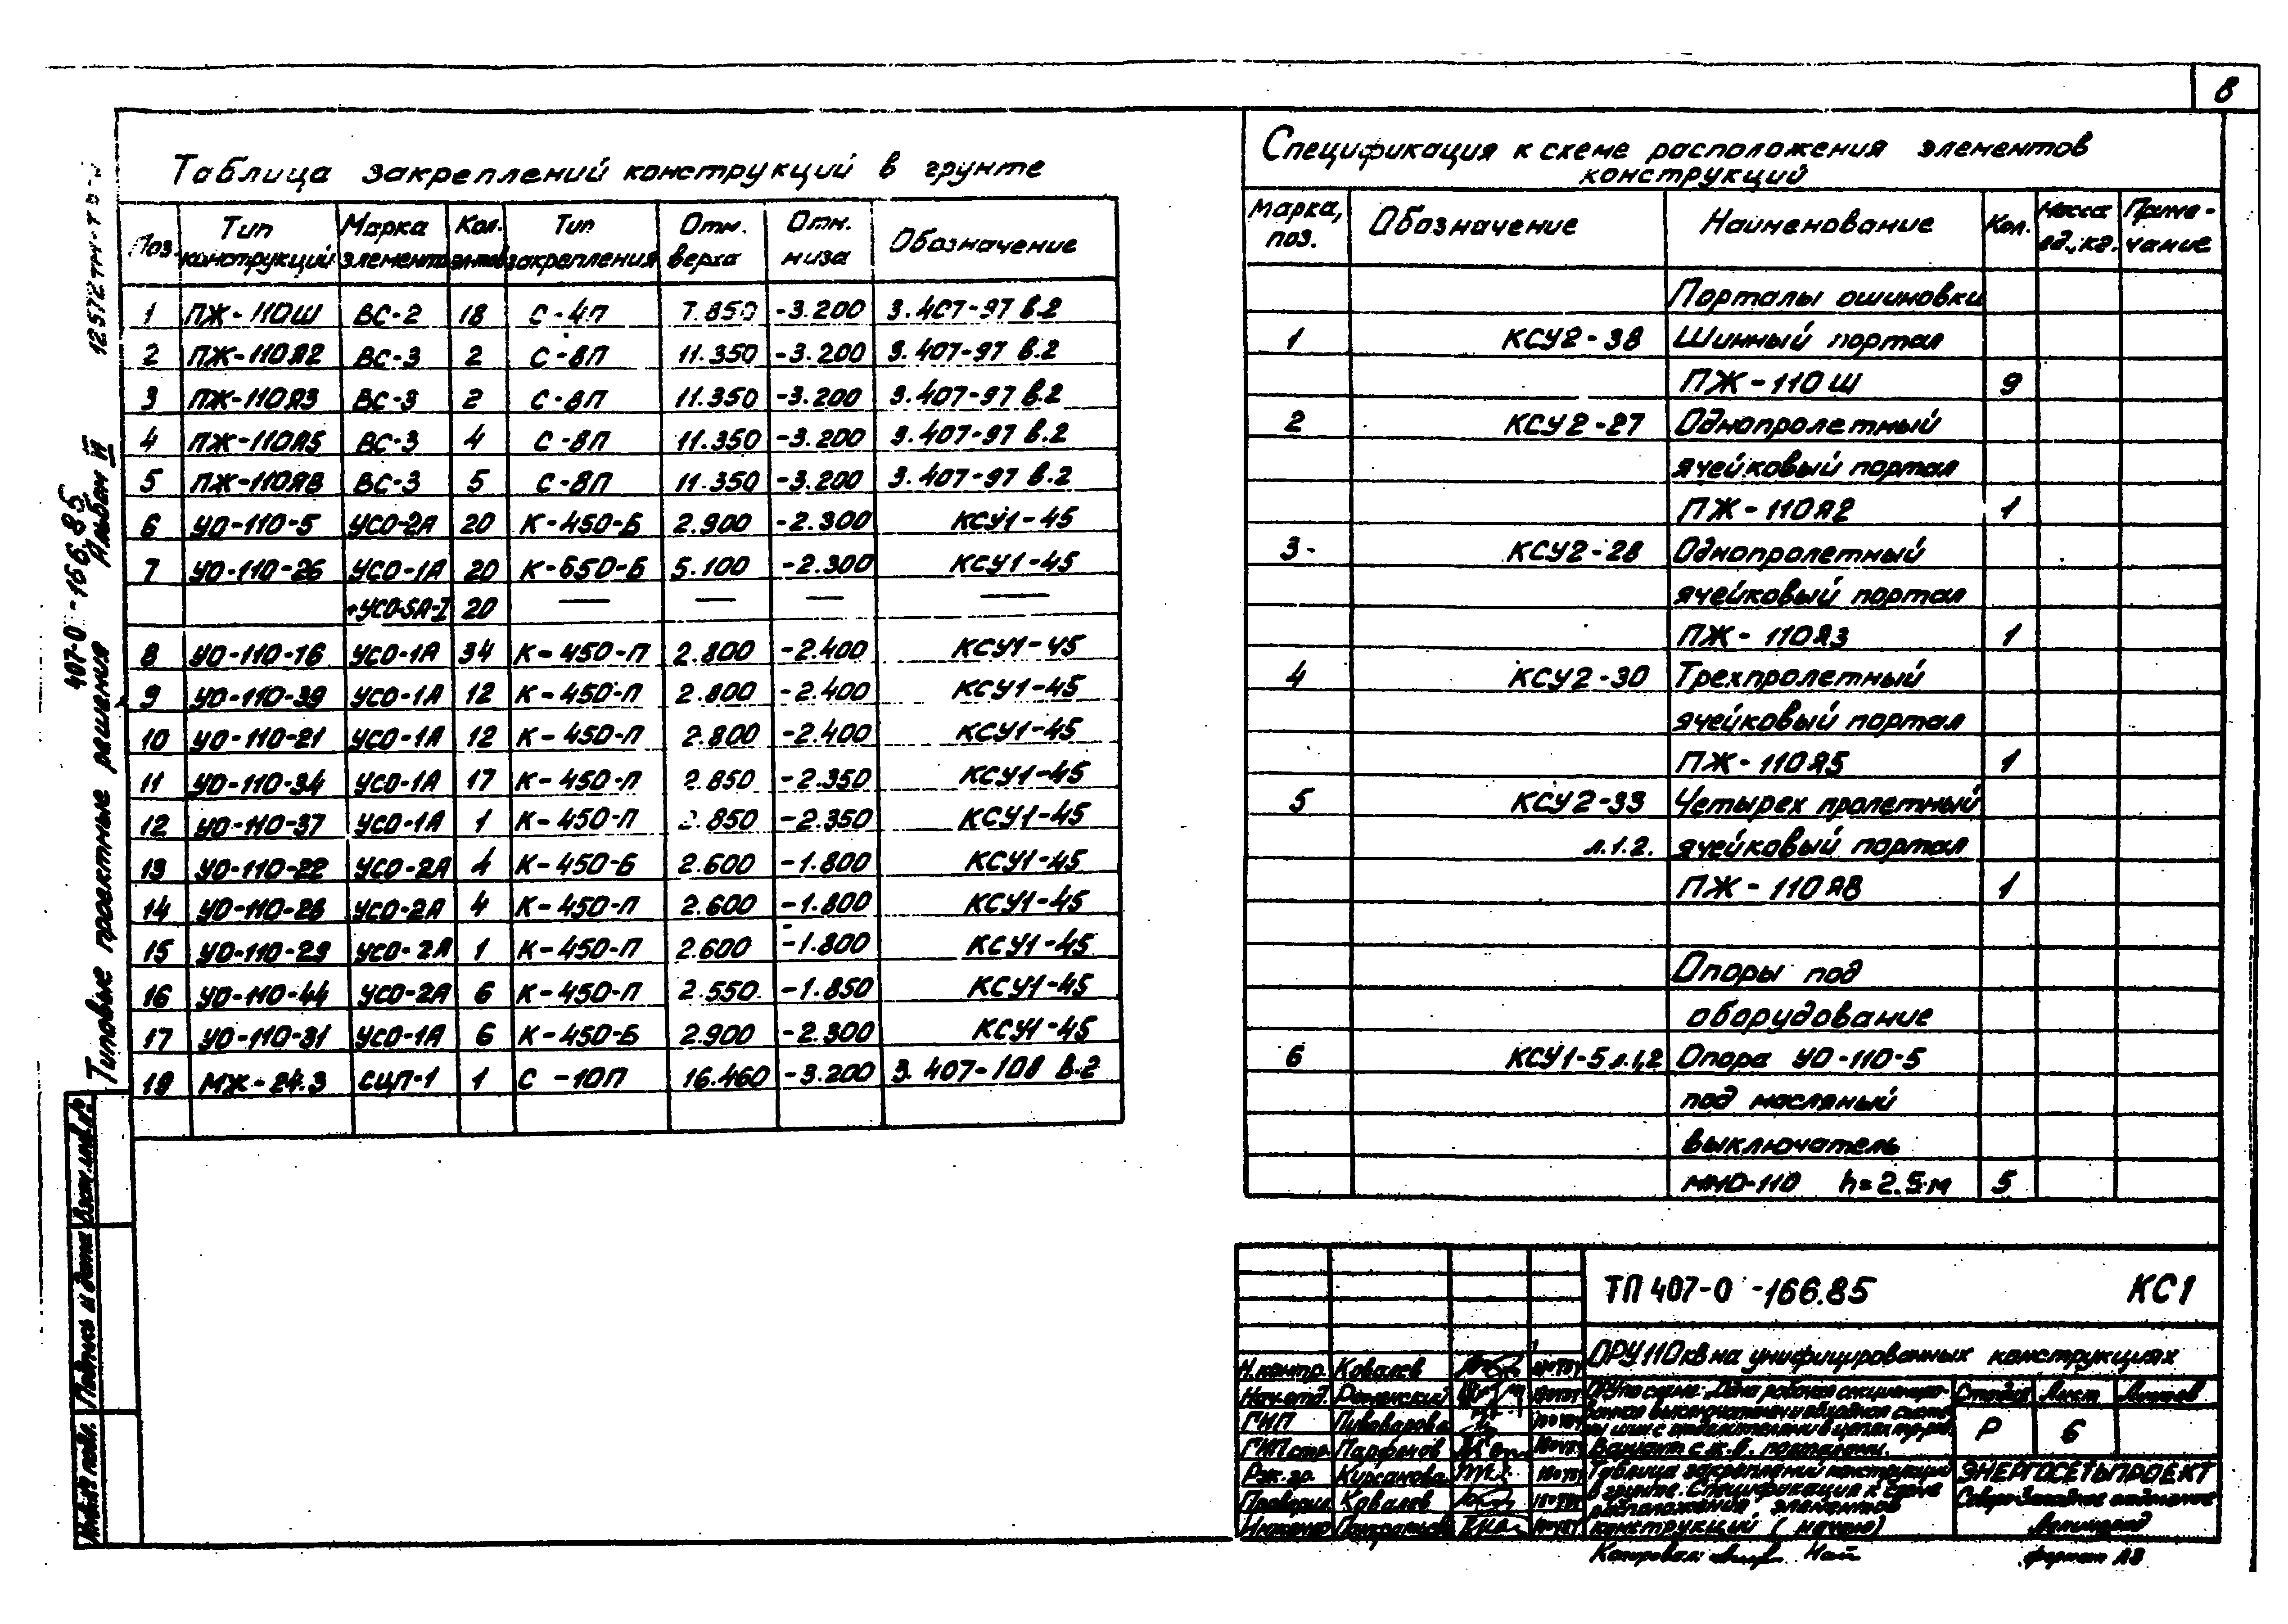 8
Таблица закреплений конструкций в грунте
Поз. Тип конструкций Марка элемента Кол. эл-тов Тип закрепления Отм. верха Отм. низа Обозначение
1 ПЖ-110Ш ВС-2 18 С-4П 7.850 -3.200 3.407-97 в.2
2 ПЖ-110Я2 ВС-3 2 С-8П 11.350 -3.200 3.407-97 в.2
3 ПЖ-110Я3 ВС-3 2 С-8П 11.350 -3.200 3.407-97 в.2
4 ПЖ-110Я5 ВС-3 4 С-8П 11.350 -3.200 3.407-97 в.2
5 ПЖ-110Я8 ВС-3 5 С-8П 11.350 -3.200 3.407-97 в.2
6 УО-110-5 УСО-2А 20 К-450-Б 2.900 -2.300 КСУ1-45
7 УО-110-26 УСО-1А 20 К-650-Б 5.100 -2.300 КСУ1-45
+УСО-5А-I 20 — — — —
8 УО-110-16 УСО-1А 34 К-450-П 2.800 -2.400 КСУ1-45
9 УО-110-39 УСО-1А 12 К-450-П 2.800 -2.400 КСУ1-45
10 УО-110-21 УСО-1А 12 К-450-П 2.800 -2.400 КСУ1-45
11 УО-110-34 УСО-1А 17 К-450-П 2.850 -2.350 КСУ1-45
12 УО-110-37 УСО-1А 1 К-450-П 2.850 -2.350 КСУ1-45
13 УО-110-22 УСО-2А 4 К-450-Б 2.600 -1.800 КСУ1-45
14 УО-110-28 УСО-2А 4 К-450-П 2.600 -1.800 КСУ1-45
15 УО-110-29 УСО-2А 1 К-450-П 2.600 -1.800 КСУ1-45
16 УО-110-44 УСО-2А 6 К-450-П 2.550 -1.850 КСУ1-45
17 УО-110-31 УСО-1А 6 К-450-Б 2.900 -2.300 КСУ1-45
19 МЖ-24.3 СЦП-1 1 С-10П 16.460 -3.200 3.407-108 в.2
Спецификация к схеме расположения элементов
конструкций
Марка, поз. Обозначение Наименование Кол. Масса ед., кг. Примечание
Порталы ошиновки
1 КСУ2-38 Шинный портал
ПЖ-110Ш 9
2 КСУ2-27 Однопролетный
ячейковый портал
ПЖ-110Я2 1
3- КСУ2-28 Однопролетный
ячейковый портал
ПЖ-110Я3 1
4 КСУ2-30 Трехпролетный
ячейковый портал
ПЖ-110Я5 1
5 КСУ2-33 Четырех пролетный
л.1.2. ячейковый портал
ПЖ-110Я8 1
Опоры под
оборудование
6 КСУ1-5 л.1,2 Опора УО-110-5
под масляный
выключатель
ММО-110 h=2.5м 5
ТП 407-0 -166.85 КС1
ОРУ 110кВ на унифицированных конструкциях
ОРУ по схеме: „Одна рабочая секциониро-
ванная выключателем и обходная систе-
мы шин с отделителями в цепях тр-ров.
Вариант с ж.б. порталами.
Стадия Лист Листов
Р 6
Таблица закреплений конструкций
в грунте. Спецификация к схеме
расположения элементов
конструкций (начало)
ЭНЕРГОСЕТЬПРОЕКТ
Северо-Западное отделение
Ленинград
Н.контр. Ковалев
Нач.отд. Роменский
ГИП Пивоварова
ГИП стр. Парфенов
Рук.гр. Курсанова
Проверил Ковалев
Инженер
Копировал:
формат А3
12572тм-т
407-0-166.85
Типовые проектные решения Альбом II
Взам.инв.№
Подпись и дата
Инв.№ подл.